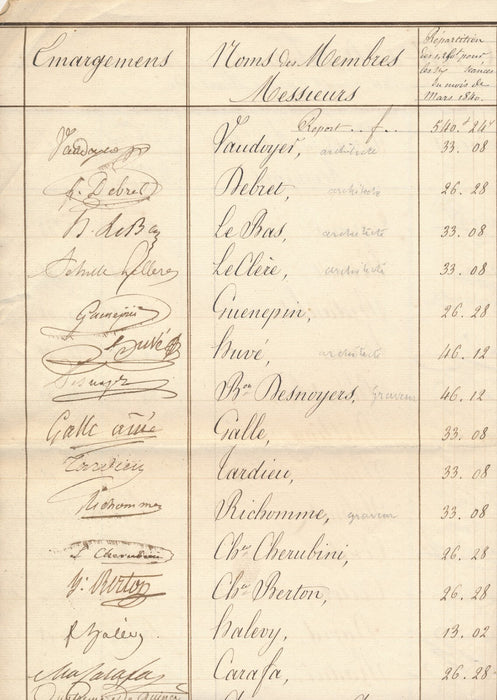 Emargemens Noms des Membres Répartition
Messieurs des 1,200f pour
les six séances
du mois de
Mars 1840.
Report . . f . . 540.f 24c
Vaudoyer Vaudoyer, architecte 33. 08
f. Debret Debret, architecte 26. 28
H. LeBas Le Bas, architecte 33. 08
Achille Leclere LeClère, architecte 33. 08
Guenepin Guenepin, 26. 28
Huvé Huvé, architecte 46. 12
Desnoyers Bon Desnoyers, graveur 46. 12
Galle ainé Galle, 33. 08
Tardieu Tardieu, 33. 08
Richomme Richomme, graveur 33. 08
L. Cherubini Cher Cherubini, 26. 28
H. Berton Cher Berton, 26. 28
f halévy halevy, 13. 02
Carafa Carafa, 26. 28